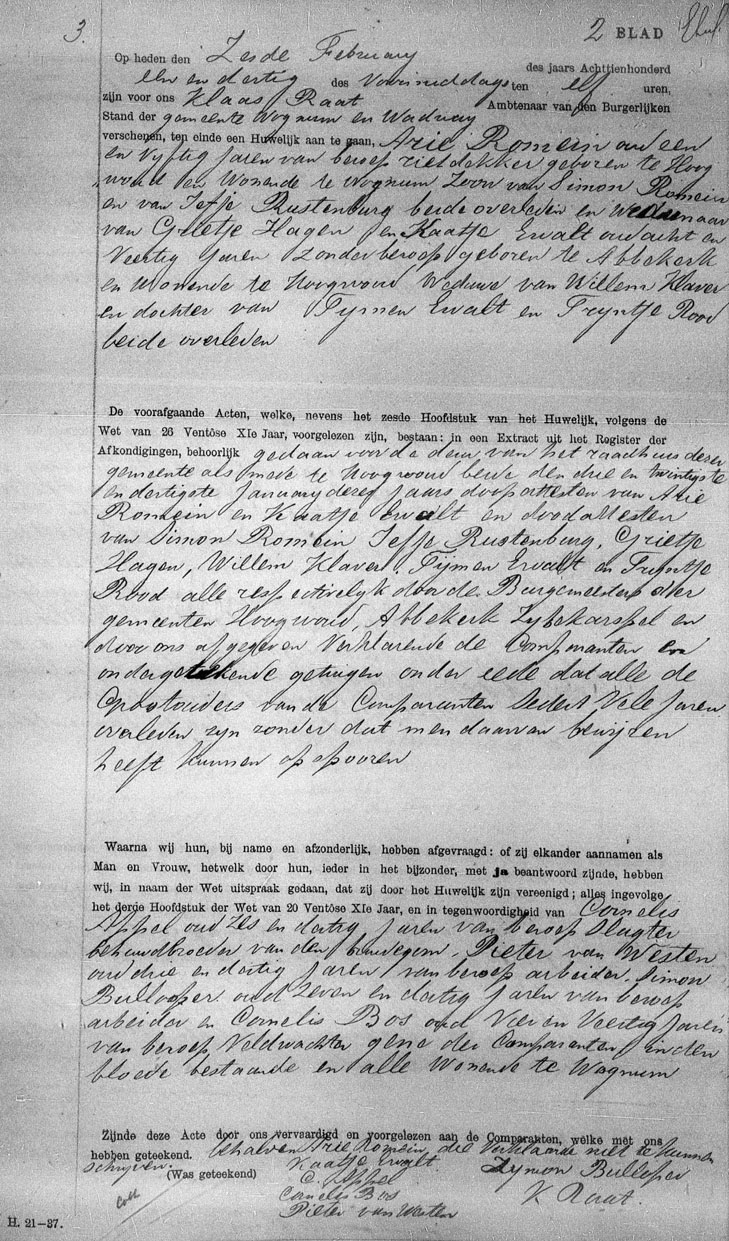 3.
2 BLAD
Op heden den Zesde February des jaars Achttienhonderd
een en dertig des voormiddags ten elf uren,
zijn voor ons Klaas Raat Ambtenaar van den Burgerlijken
Stand der gemeente Wognum en Wadway
verschenen, ten einde een Huwelijk aan te gaan, Arie Romein oud een
en Vyftig Jaren van beroep rietdekker geboren te Hoog
woud en Wonende te Wognum Zoon van Simon Romein
en van Jefje Rustenburg beide overleden en Weduwnaar
van Grietje Hagen en Kaatje Ewalt oud acht en
Veertig Jaren Zonder beroep geboren te Abbekerk
en Wonende te Hoogwoud Weduwe van Willem Klaver
en dochter van Tymen Ewalt en Tryntje Rood
beide overleden
De voorafgaande Acten, welke, nevens het zesde Hoofdstuk van het Huwelijk, volgens de
Wet van 26 Ventôse XIe Jaar, voorgelezen zijn, bestaan: in een Extract uit het Register der
Afkondigingen, behoorlijk gedaan voor de deur van het raadhuis dezer
gemeente als mede te Hoogwoud beide den drie en twintigste
en dertigste January dezes jaars doopattesten van Arie
Romein en Kaatje Ewalt en doodattesten
van Simon Romein Jefje Rustenburg, Grietje
Hagen, Willem Klaver, Tymen Ewalt en Tryntje
Rood alle respectivelyk door de Burgemeesters der
gemeenten Hoogwoud, Abbekerk Zybekarspel en
door ons afgegeven Verklarende de Comparanten en
ondergetekende getuigen onder eede dat alle de
Grootouders van de Comparanten Sedert Vele Jaren
overleden zyn zonder dat men daarvan bewyzen
heeft kunnen opspooren
Waarna wij hun, bij name en afzonderlijk, hebben afgevraagd: of zij elkander aannamen als
Man en Vrouw, hetwelk door hun, ieder in het bijzonder, met ja beantwoord zijnde, hebben
wij, in naam der Wet uitspraak gedaan, dat zij door het Huwelijk zijn vereenigd; alles ingevolge
het derde Hoofdstuk der Wet van 20 Ventôse XIe Jaar, en in tegenwoordigheid van Cornelis
Appel oud Zes en dertig Jaren van beroep Slagter
behuwdbroeder van den bruidegom, Pieter van Westen
oud drie en dertig Jaren van beroep arbeider, Simon
Bullooper oud Zeven en dertig Jaren van beroep
arbeider en Cornelis Bos oud Vier en Veertig Jaren
van beroep Veldwachter gene der Comparanten in den
bloede bestaande en alle Wonende te Wognum
Zijnde deze Acte door ons vervaardigd en voorgelezen aan de Comparanten, welke met ons
hebben geteekend. behalven Arie Romein die Verklaarde niet te kunnen
schryven. (Was geteekend) Kaatje Ewalt Zymon Bullooper
C. Appel
Cornelis Bos K Raat.
Pieter van Westen
Coll
H. 21-27.